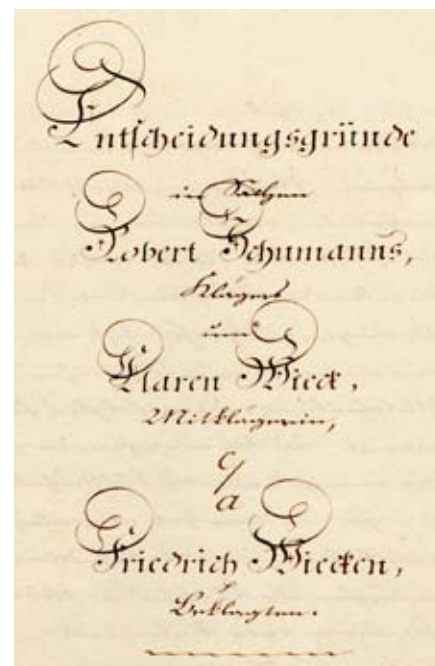 Entscheidungsgründe
in Sachen
Robert Schumanns,
Klägers
und
Claren Wieck,
Mitklägerin,
c/a
Friedrich Wiecken,
Beklagten.